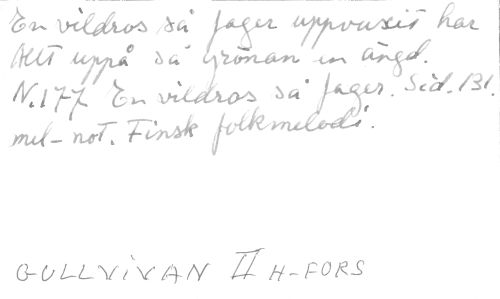 En vildros så fager uppvuxit har
Allt uppå så grönan en ängd.
N.177 En vildros så fager. Sid. 131.
mel-not. Finsk folkmelodi.
GULLVIVAN II H-FORS